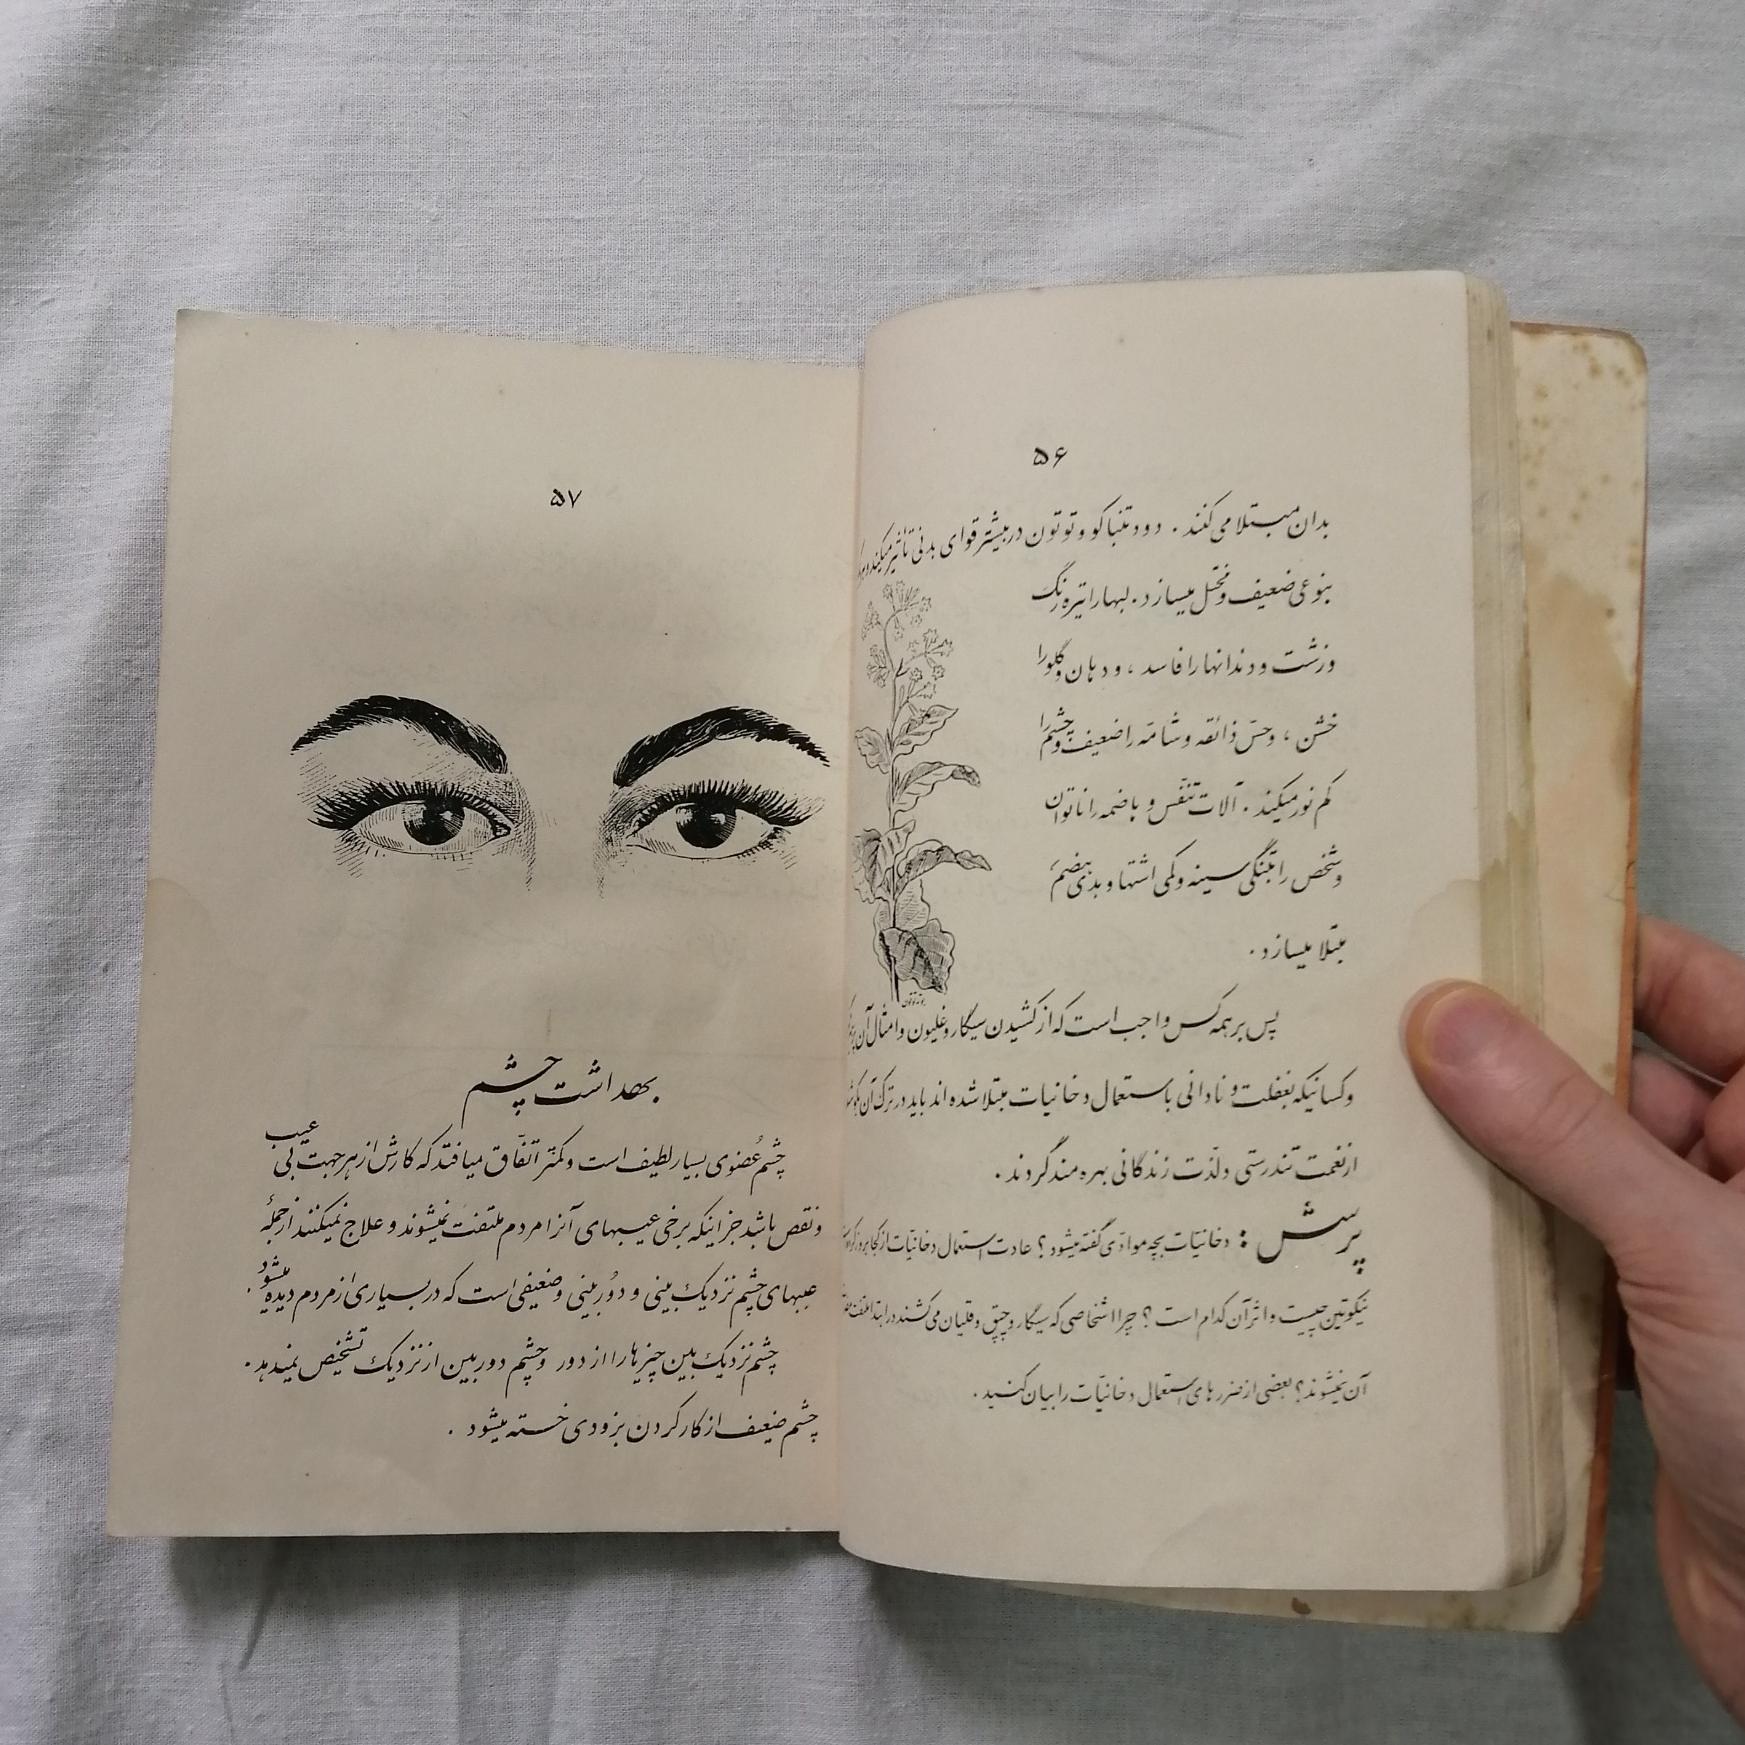 ۵۶
بدان مبتلا می کنند . دود تنباکو و توتون در بیشتر قوای بدنی تأثیر میکند و
بنوعی ضعیف و مختل میسازد . لبها را تیره رنگ
و زشت و دندانها را فاسد ، و دهان و گلو را
خشن ، و حسّ ذائقه و شامّه را ضعیف و چشم را
کم نور میکند . آلات تنفّس و هاضمه را ناتوان
و شخص را بتنگی سینه و کمی اشتها و بدی هضم
مبتلا میسازد .
بوته توتون
پس بر همه کس واجب است که از کشیدن سیگار و غلیون و امثال آن
و کسانیکه بغفلت و نادانی باستعمال دخانیات مبتلا شده اند باید در ترک آن
از نعمت تندرستی و لذّت زندگانی بهره مند گردند .
پرسش : دخانیّات بچه موادّی گفته میشود ؟ عادت استعمال دخانیّات از کجا
نیکوتین چیست و اثر آن کدام است ؟ چرا اشخاصی که سیگار و چپق و قلیان می کشند در ابتدا
آن نمیشوند ؟ بعضی از ضررهای استعمال دخانیّات را بیان کنید .
۵۷
بهداشت چشم
چشم عُضوی بسیار لطیف است و کمتر اتّفاق میافتد که کارش از هر جهت بی عیب
و نقص باشد جز اینکه برخی عیبهای آنرا مردم ملتفت نمیشوند و علاج نمیکنند از جملهٔ
عیبهای چشم نزدیک بینی و دُور بینی و ضعیفی است که در بسیاری از مردم دیده میشود .
چشم نزدیک بین چیزها را از دور و چشم دور بین از نزدیک تشخیص نمیدهد .
چشم ضعیف از کار کردن بزودی خسته میشود .